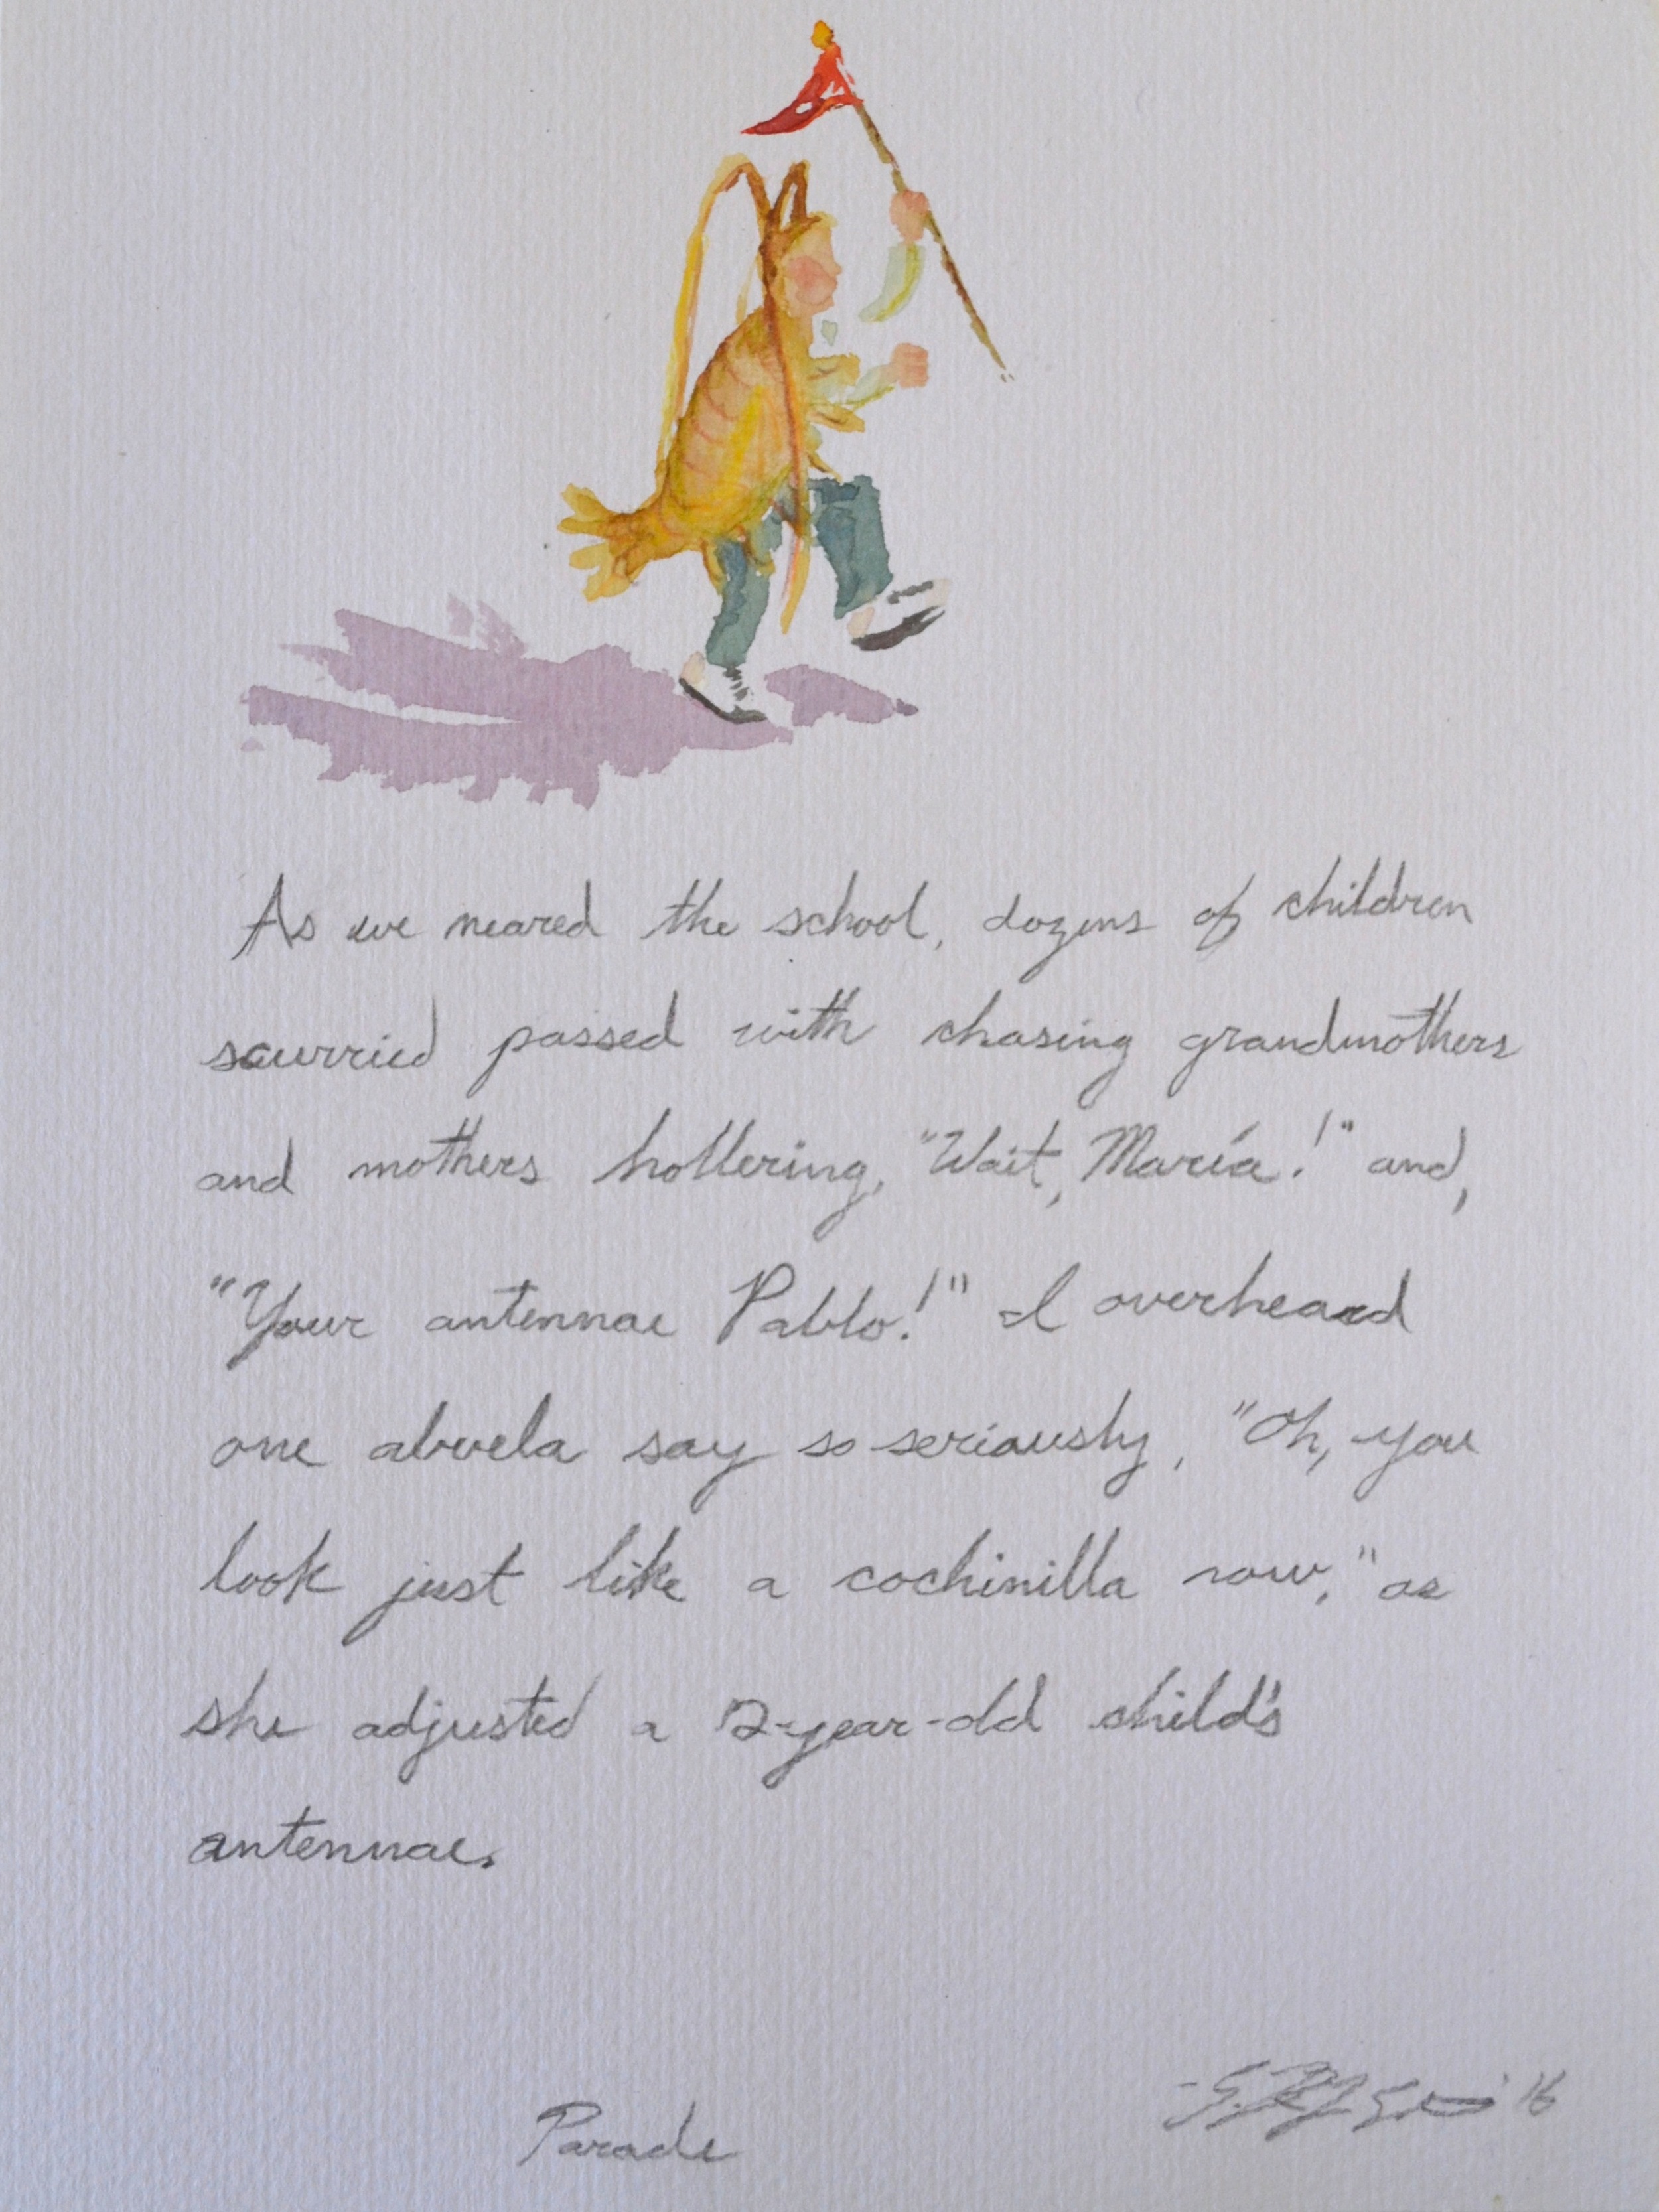 As we neared the school, dozens of children
scurried passed with chasing grandmothers
and mothers hollering, "Wait, María!" and,
"Your antennae Pablo!" I overheard
one abuela say so seriously, "Oh, you
look just like a cochinilla now," as
she adjusted a 2-year-old child's
antennae.
Parade
16